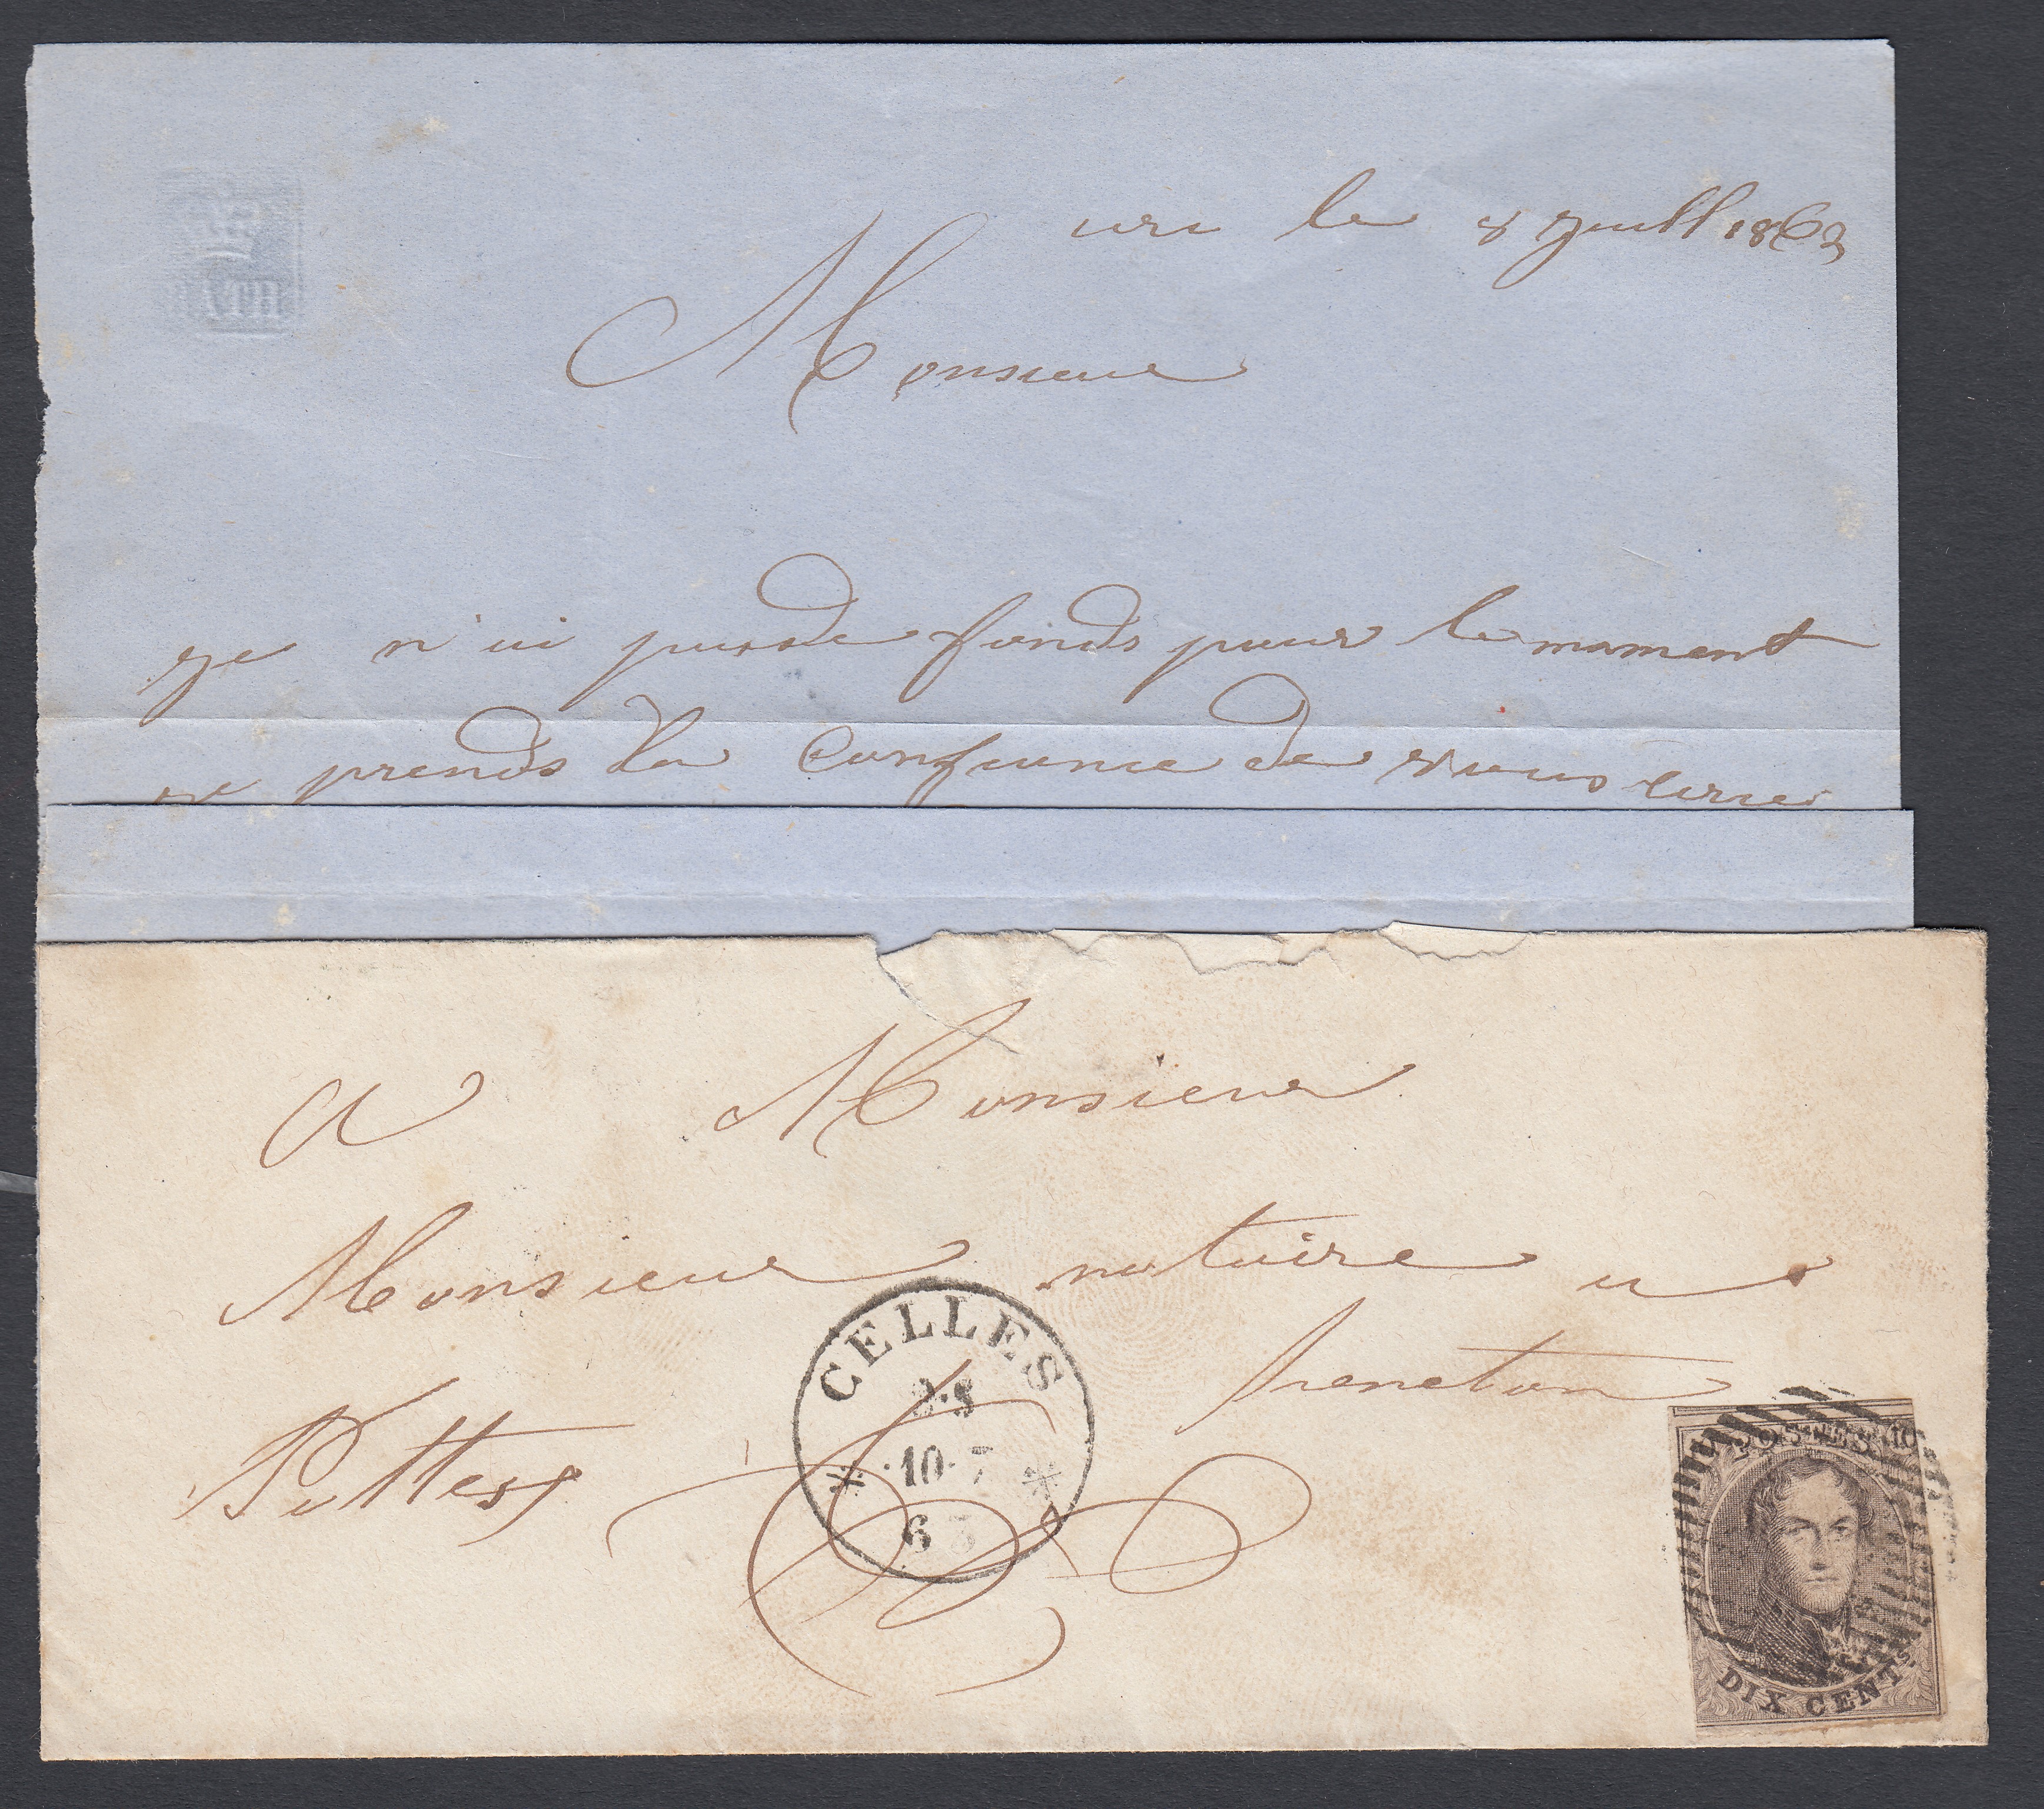 le 8 juill 1863
Monsieur
je n'ai pas de fonds pour le mament
je prends la confiance de vous ecrire
A Monsieur
Monsieur notaire a
Pottes
CELLES
10·7
63
POSTES 10
DIX CENTS.